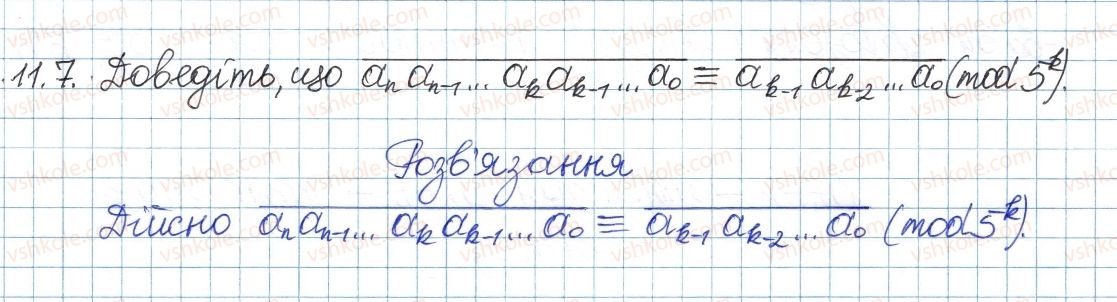 11.7. Доведіть, що aₙaₙ₋₁... aₖaₖ₋₁... a₀ ≡ aₖ₋₁aₖ₋₂... a₀ (mod 5ᵏ).
Розв'язання
Дійсно aₙaₙ₋₁... aₖaₖ₋₁... a₀ ≡ aₖ₋₁aₖ₋₂... a₀ (mod 5ᵏ).